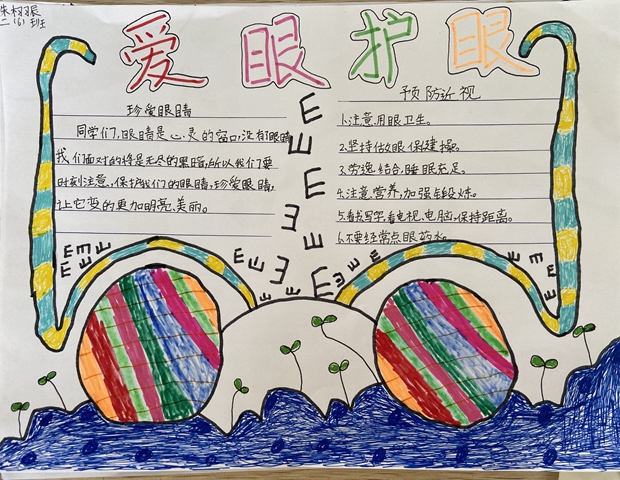 朱栩辰
二(6)班
爱眼护眼
珍爱眼睛
同学们,眼睛是心灵的窗口,没有眼睛
我们面对的将是无尽的黑暗,所以我们要
时刻注意,保护我们的眼睛,珍爱眼睛,
让它变的更加明亮、美丽。
预防近视
1.注意用眼卫生。
2.坚持做眼保健操。
3.劳逸结合,睡眠充足。
4.注意营养,加强锻炼。
5.看书写字,看电视、电脑,保持距离。
6.不要经常点眼药水。